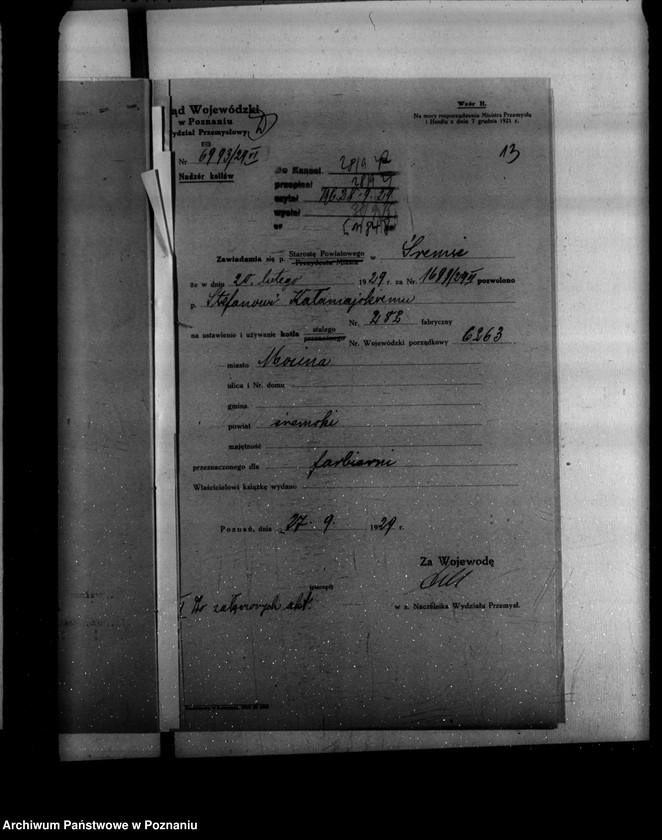 ąd Wojewódzki
w Poznaniu
Wydział Przemysłowy
Nr. 6993/29 VI
Nadzór kotłów
Wzór H.
Na mocy rozporządzenia Ministra Przemysłu
i Handlu z dnia 7 grudnia 1921 r.
13
Do Kancel. 28/9
przepisał 28/9
czytał 28.9.29
wysłał
nr
Zawiadamia się p. Starostę Powiatowego w Śremie
Prezydenta Miasta
że w dniu 20. lutego 1929 r. za Nr. 1699/29 VI pozwolono
p. Stefanowi Kałamajskiemu
na ustawienie i używanie kotła stałego Nr. 282 fabryczny
przenośnego Nr. Wojewódzki porządkowy 6263
miasto Mosina
ulica i Nr. domu
gmina
powiat śremski
majętność
przeznaczonego dla farbiarni
Właścicielowi książkę wydano
Poznań, dnia 27. 9. 1929 r.
Za Wojewodę
(pieczęć)
w z. Naczelnika Wydziału Przemysł.
Do załączonych akt.
Archiwum Państwowe w Poznaniu